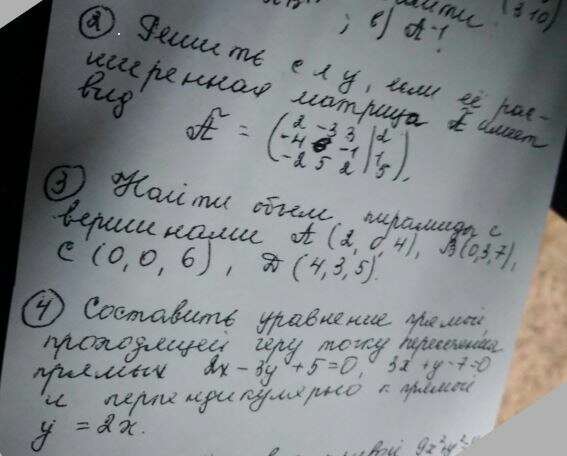 (3 10)
; в) A⁻¹.
② Решить СЛУ, если её рас-
ширенная матрица Ã имеет
вид
Ã = ( 2 -3 3 | 2
-4 6 -1 | 1
-2 5 2 | 5 ).
③ Найти объем пирамиды с
вершинами A (2, 0, 4), B(0,3,7),
C (0, 0, 6), D (4, 3, 5).
④ Составить уравнение прямой,
проходящей через точку пересечения
прямых 2x - 3y + 5 = 0, 3x + y - 7 = 0
и перпендикулярно к прямой
y = 2x.
9x²+y²